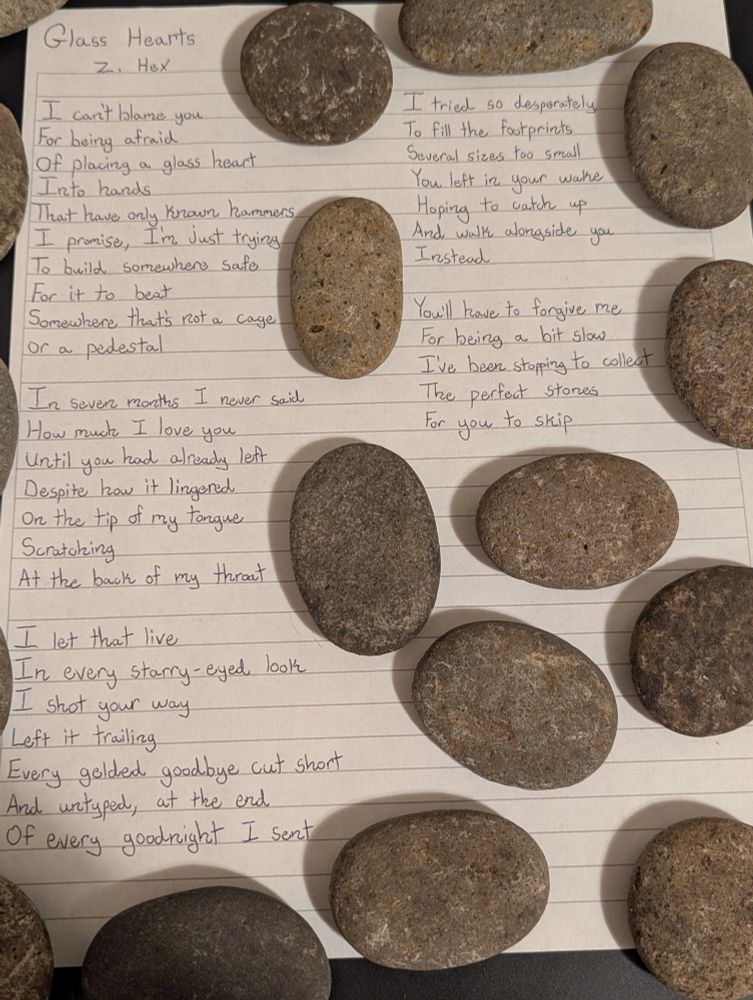 Glass Hearts
Z. Hex
I can't blame you
For being afraid
Of placing a glass heart
Into hands
That have only known hammers
I promise, I'm just trying
To build somewhere safe
For it to beat
Somewhere that's not a cage
Or a pedestal
In seven months I never said
How much I love you
Until you had already left
Despite how it lingered
On the tip of my tongue
Scratching
At the back of my throat
I let that live
In every starry-eyed look
I shot your way
Left it trailing
Every gelded goodbye cut short
And untyped, at the end
Of every goodnight I sent
I tried so desperately
To fill the footprints
Several sizes too small
You left in your wake
Hoping to catch up
And walk alongside you
Instead
You'll have to forgive me
For being a bit slow
I've been stopping to collect
The perfect stones
For you to skip